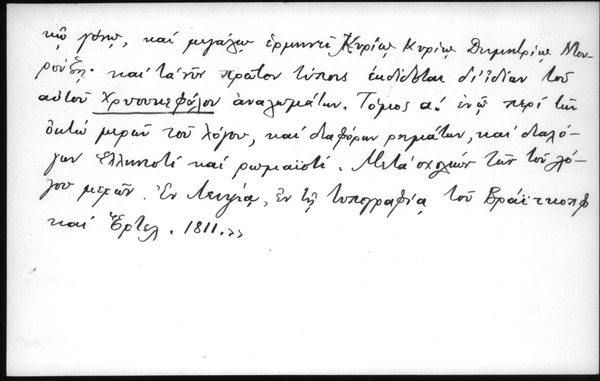 κῷ γένει, καὶ μεγάλῳ ἑρμηνεῖ Κυρίῳ Κυρίῳ Δημητρίῳ Μου-
ρούζῃ. καὶ τανῦν πρῶτον τύποις ἐκδίδεται δι' ἰδίων τοῦ
αὐτοῦ Χρυσοκεφάλου ἀναλωμάτων. Τόμος α΄. ἐν ᾧ περὶ τῶν
ὀκτὼ μερῶν τοῦ λόγου, καὶ διαφόρων ρημάτων, καὶ διαλό-
γων ἑλληνιστὶ καὶ ρωμαϊστί. Μετὰ σχολίων τῶν τοῦ λό-
γου μερῶν. Ἐν Λειψίᾳ, ἐν τῇ τυπογραφίᾳ τοῦ Βράϊτκοπφ
καὶ Ἕρτελ. 1811.»